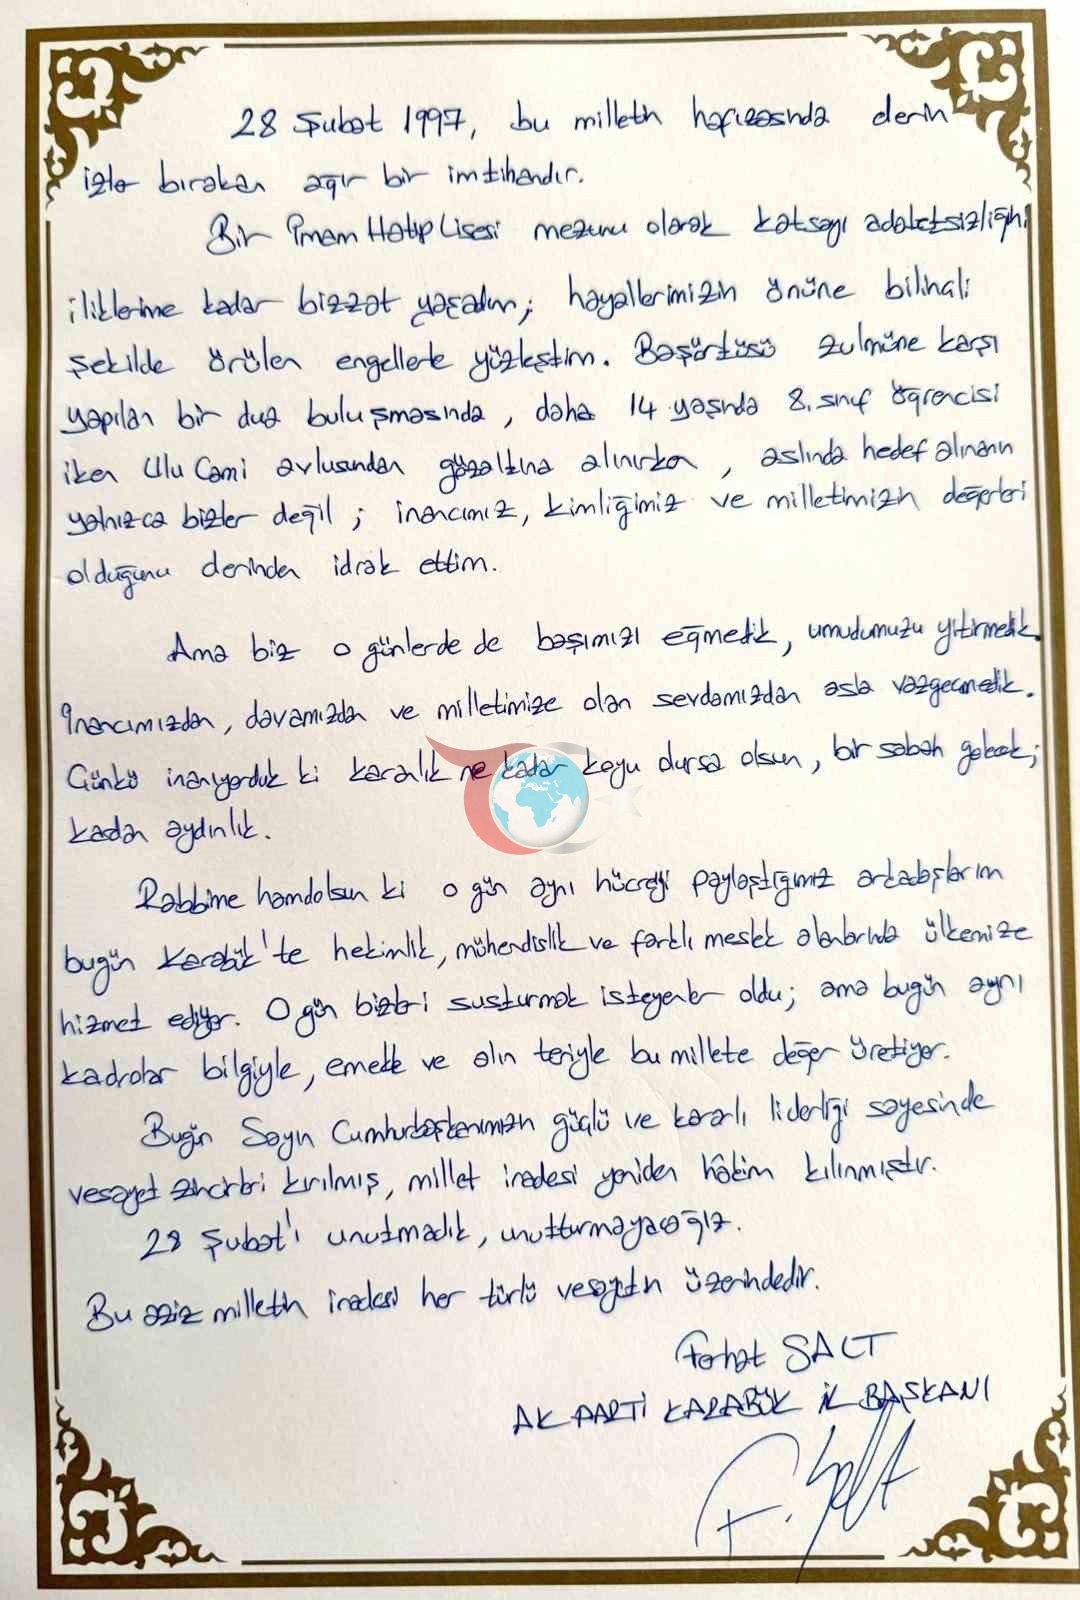 28 Şubat 1997, bu milletin hafızasında derin
izler bırakan ağır bir imtihandır.
Bir İmam Hatip Lisesi mezunu olarak katsayı adaletsizliğini
iliklerime kadar bizzat yaşadım; hayallerimizin önüne bilinçli
şekilde örülen engellerle yüzleştim. Başörtüsü zulmüne karşı
yapılan bir dua buluşmasında, daha 14 yaşında 8. sınıf öğrencisi
iken Ulu Cami avlusundan gözaltına alınırken, aslında hedef alınanın
yalnızca bizler değil; inancımız, kimliğimiz ve milletimizin değerleri
olduğunu derinden idrak ettim.
Ama biz o günlerde de başımızı eğmedik, umudumuzu yitirmedik.
İnancımızdan, davamızdan ve milletimize olan sevdamızdan asla vazgeçmedik.
Çünkü inanıyorduk ki karanlık ne kadar koyu olursa olsun, bir sabah gelecek;
kadar aydınlık.
Rabbime hamdolsun ki o gün aynı hücreyi paylaştığımız arkadaşlarım
bugün Karabük'te hekimlik, mühendislik ve farklı meslek alanlarında ülkemize
hizmet ediyor. O gün bizleri susturmak isteyenler oldu; ama bugün aynı
kadrolar bilgiyle, emekle ve alın teriyle bu millete değer üretiyor.
Bugün Sayın Cumhurbaşkanımızın güçlü ve kararlı liderliği sayesinde
vesayet zincirleri kırılmış, millet iradesi yeniden hâkim kılınmıştır.
28 Şubat'ı unutmadık, unutturmayacağız.
Bu aziz milletin iradesi her türlü vesayetin üzerindedir.
Ferhat SALT
AK PARTİ KARABÜK İL BAŞKANI
F. Salt